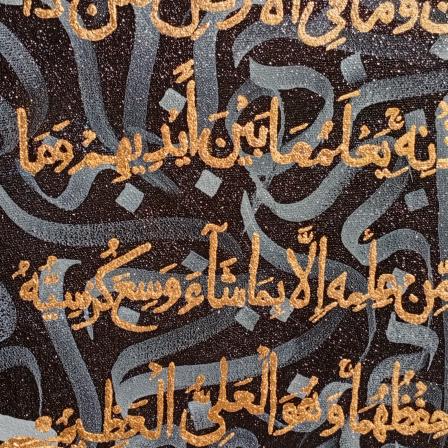 وَمَا فِي الْأَرْضِ مَن ذَا
يَعْلَمُ مَا بَيْنَ أَيْدِيهِمْ وَمَا
مِّنْ عِلْمِهِ إِلَّا بِمَا شَاءَ وَسِعَ كُرْسِيُّهُ
حِفْظُهُمَا وَهُوَ الْعَلِيُّ الْعَظِيمُ